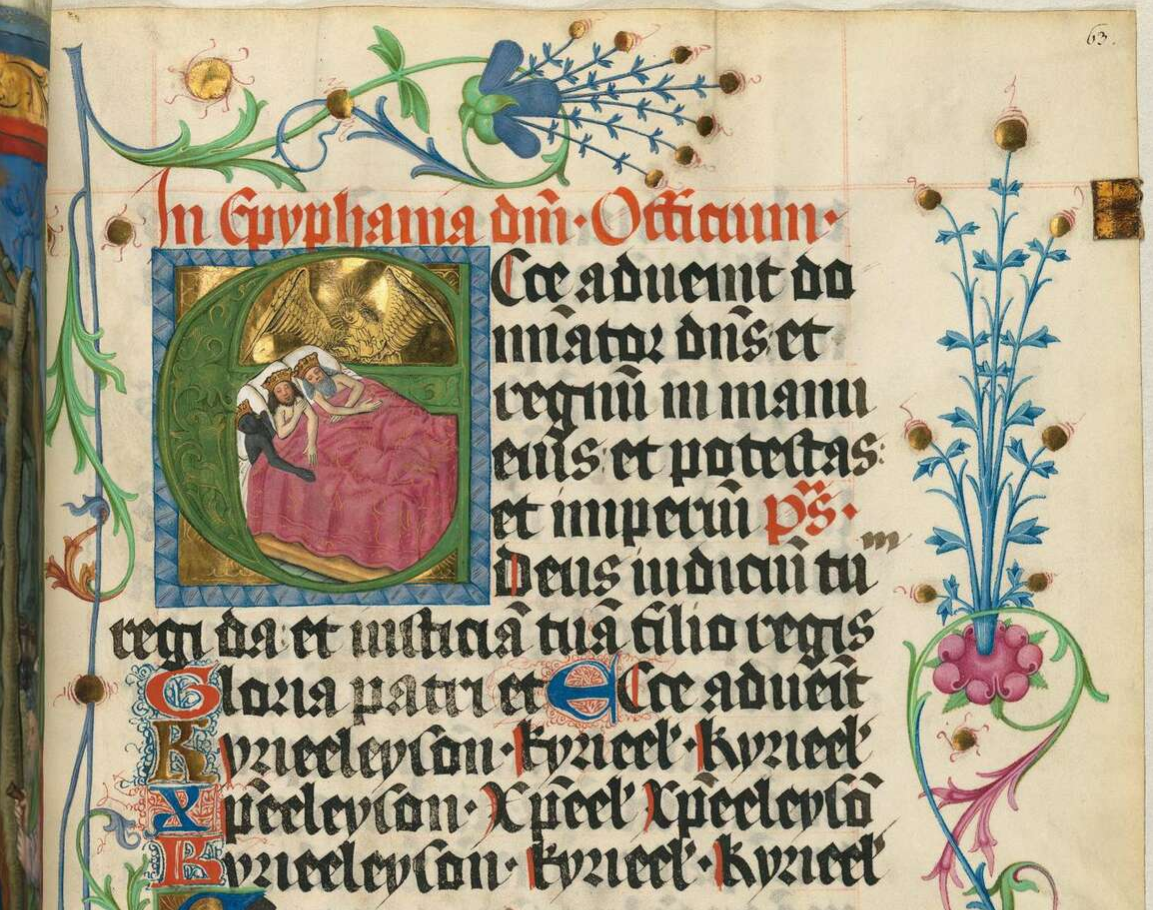 63.
In Epyphania dm̄·Officium·
Ecce aduenit do
minator dn̄s: et
regnū in manu
eius: et potestas:
et imperiū p̄s·
Deus iudiciū tuum
regi da: et iusticiā tuā filio regis
Gloria patri et Ecce adueīt
Kyrieeleyson·kyrieel'·kyrieel'
Xp̄eeleyson· Xp̄eel' Xp̄eeleysō
Kyrieeleyson· kyrieel'·kyrieel'